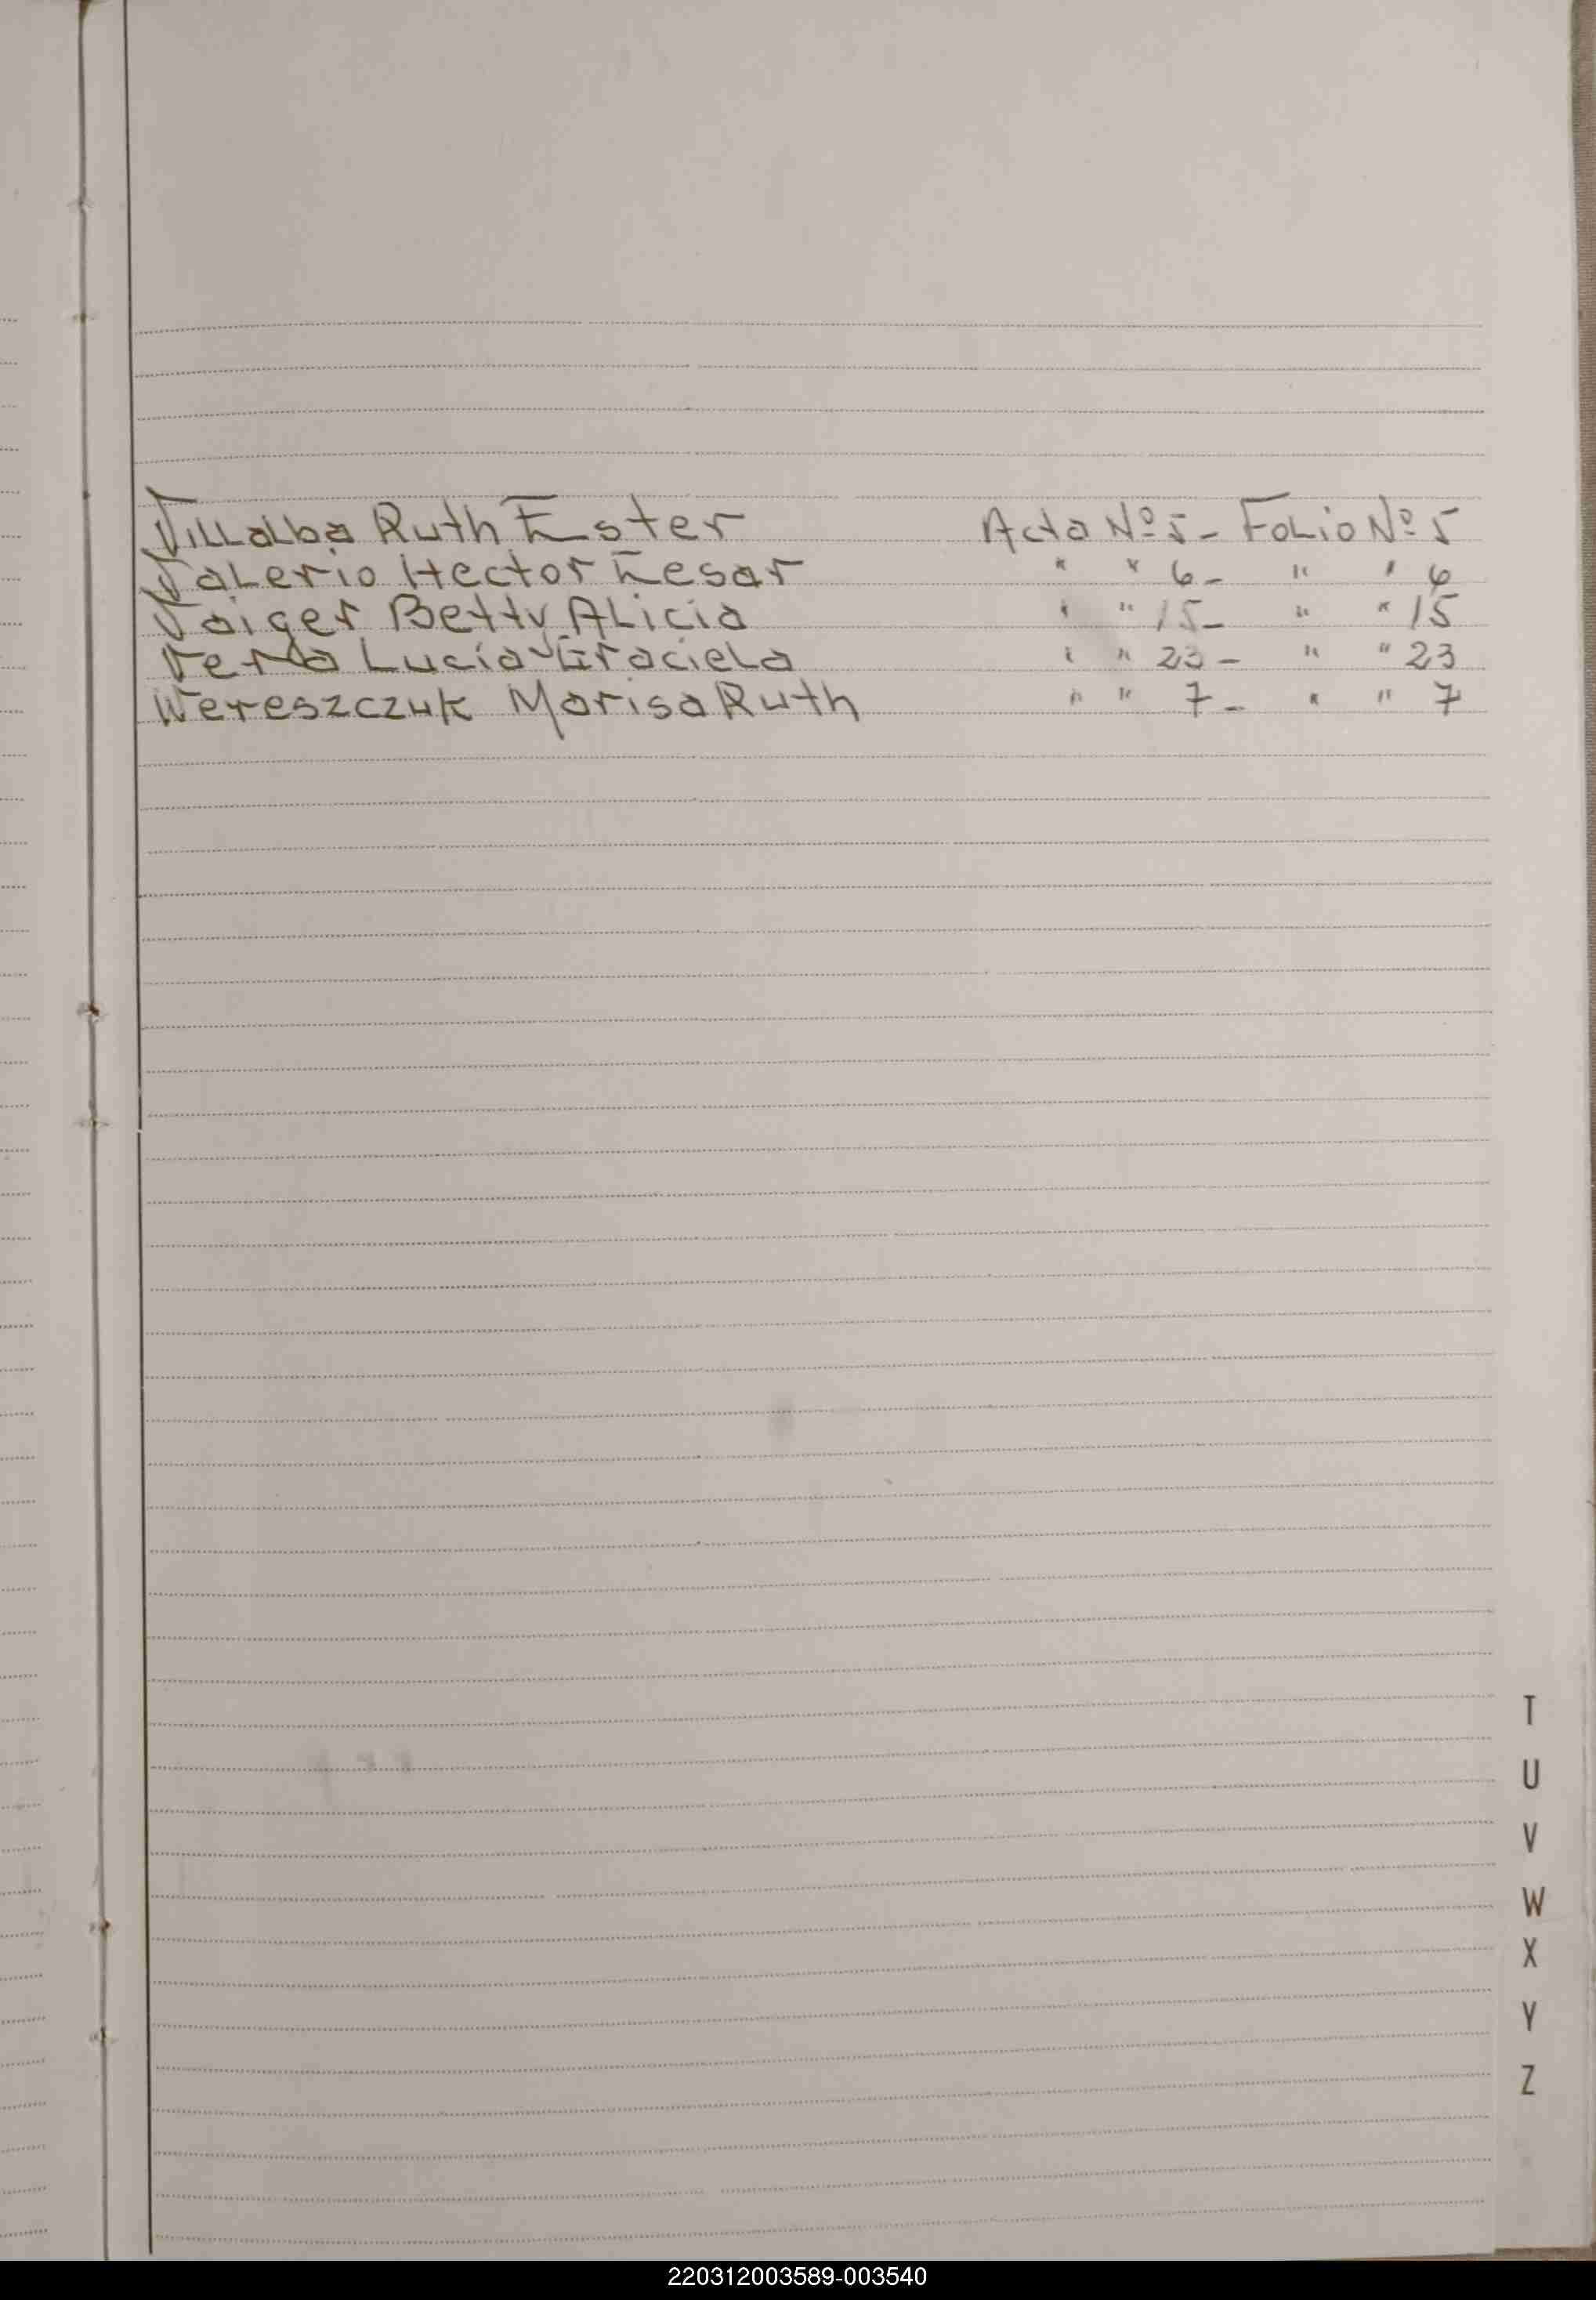 Villalba Ruth Ester Acta Nº 5 - Folio Nº 5
Valerio Hector Cesar " " 6 - " " 6
Voiger Betty Alicia " " 15 - " " 15
Vera Lucia Graciela " " 23 - " " 23
Wereszczuk Marisa Ruth " " 7 - " " 7
T
U
V
W
X
Y
Z
220312003589-003540